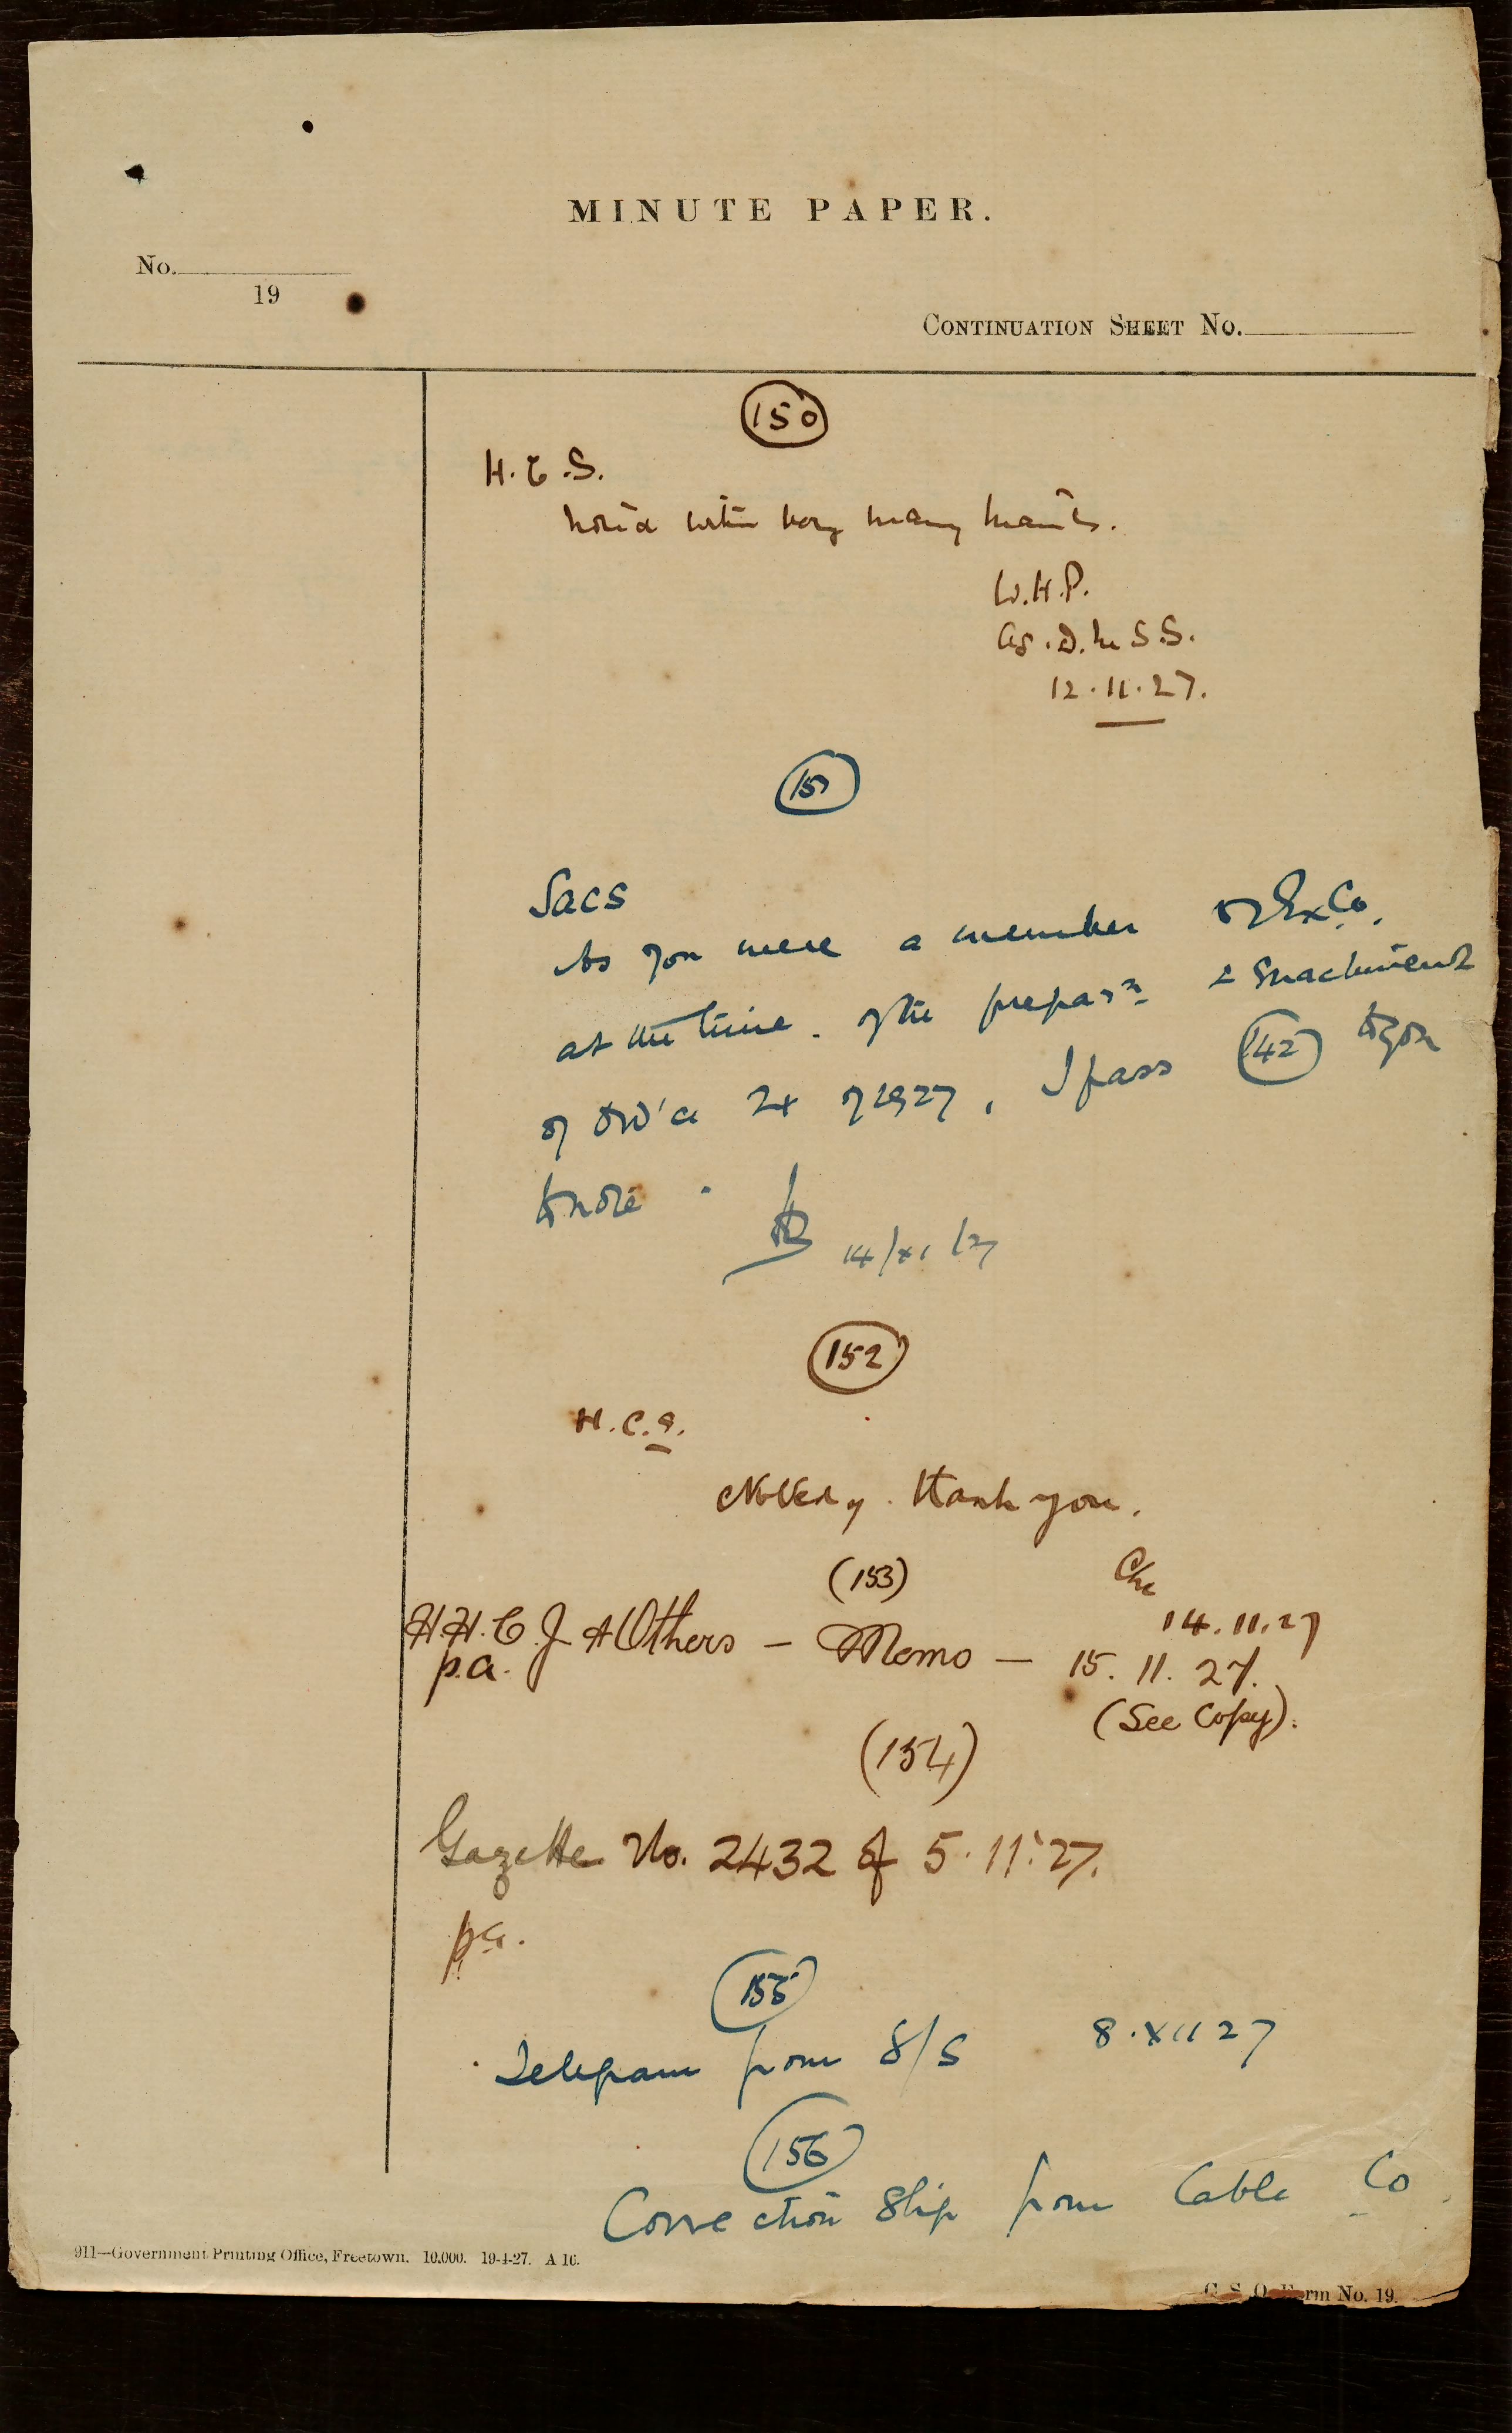 MINUTE PAPER.
No.
19
CONTINUATION SHEET No.
150
H.C.S.
Noted with very many thanks.
W.H.P.
Ag. D.M.S.S.
12.11.27.
151
Sacs
As you were a member of Ex. Co.
at the time of the preparn. & enactment
of Ord'ce 24 of 1927, I pass (142) to you
to note.
14/xi/27
152
H.C.S.
Noted, thank you.
(153)
14.11.27
H.H.C.J. & Others — Memo — 15.11.27.
p.a.
(See Copy).
(154)
Gazette No. 2432 of 5.11.27.
p.a.
155
Telegram from S/S 8.XII 27
156
Correction Slip from Cable Co.
911—Government Printing Office, Freetown. 10,000. 19-4-27. A 16.
C. S. O. Form No. 19.